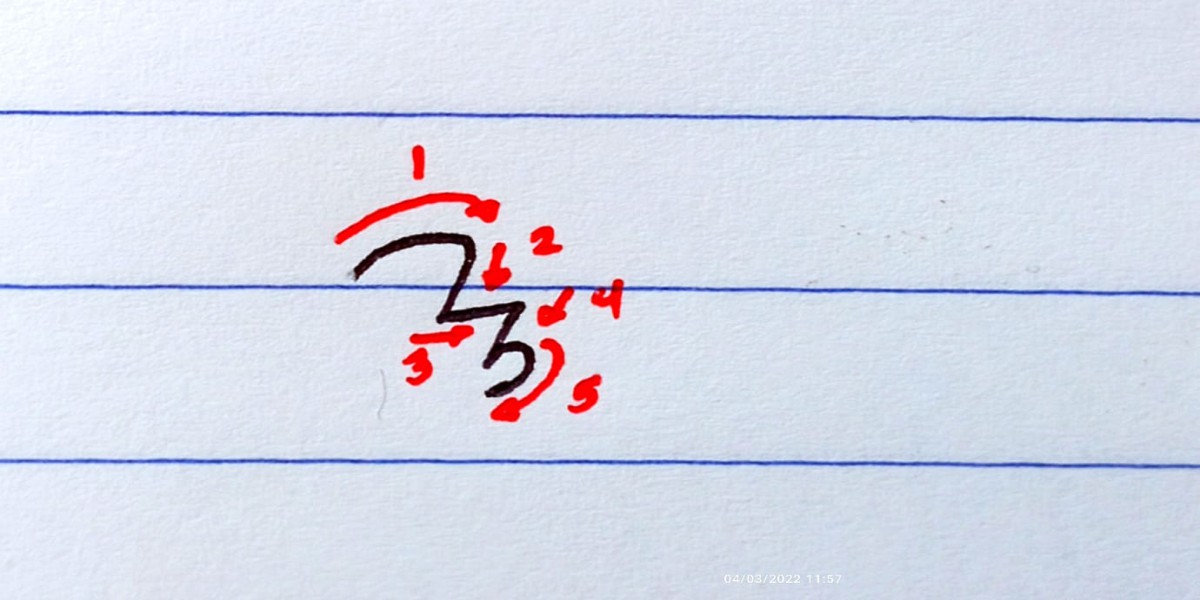 1
2
4
3
5
04/03/2022 11:57